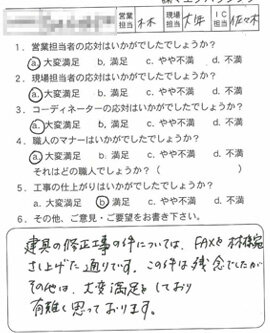 営業担当 木木 現場担当 大坪 IC担当 佐々木
1．営業担当者の応対はいかがでしたでしょうか？
a. 大変満足 b, 満足 c. やや不満 d. 不満
2．現場担当者の応対はいかがでしたでしょうか？
a. 大変満足 b, 満足 c. やや不満 d. 不満
3．コーディネーターの応対はいかがでしたでしょうか？
a. 大変満足 b, 満足 c. やや不満 d. 不満
4．職人のマナーはいかがでしたでしょうか？
a. 大変満足 b, 満足 c. やや不満 d. 不満
それはどの職人でしょうか？（ ）
5．工事の仕上がりはいかがでしたでしょうか？
a. 大変満足 b 満足 c. やや不満 d. 不満
6．その他、ご意見・ご要望をお書き下さい。
建具の修正工事の件については、FAXを 様宛
さし上げた通りです。この件は残念でしたが
その他は、大変満足をしており
有難く思っております。